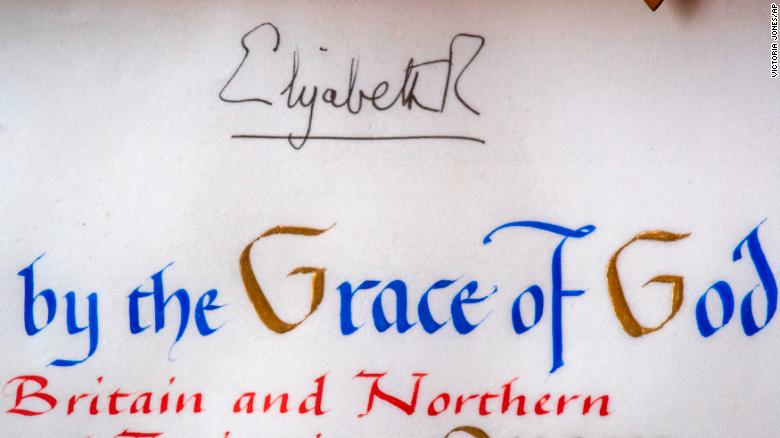 VICTORIA JONES/AP
Elizabeth R
by the Grace of God
Britain and Northern